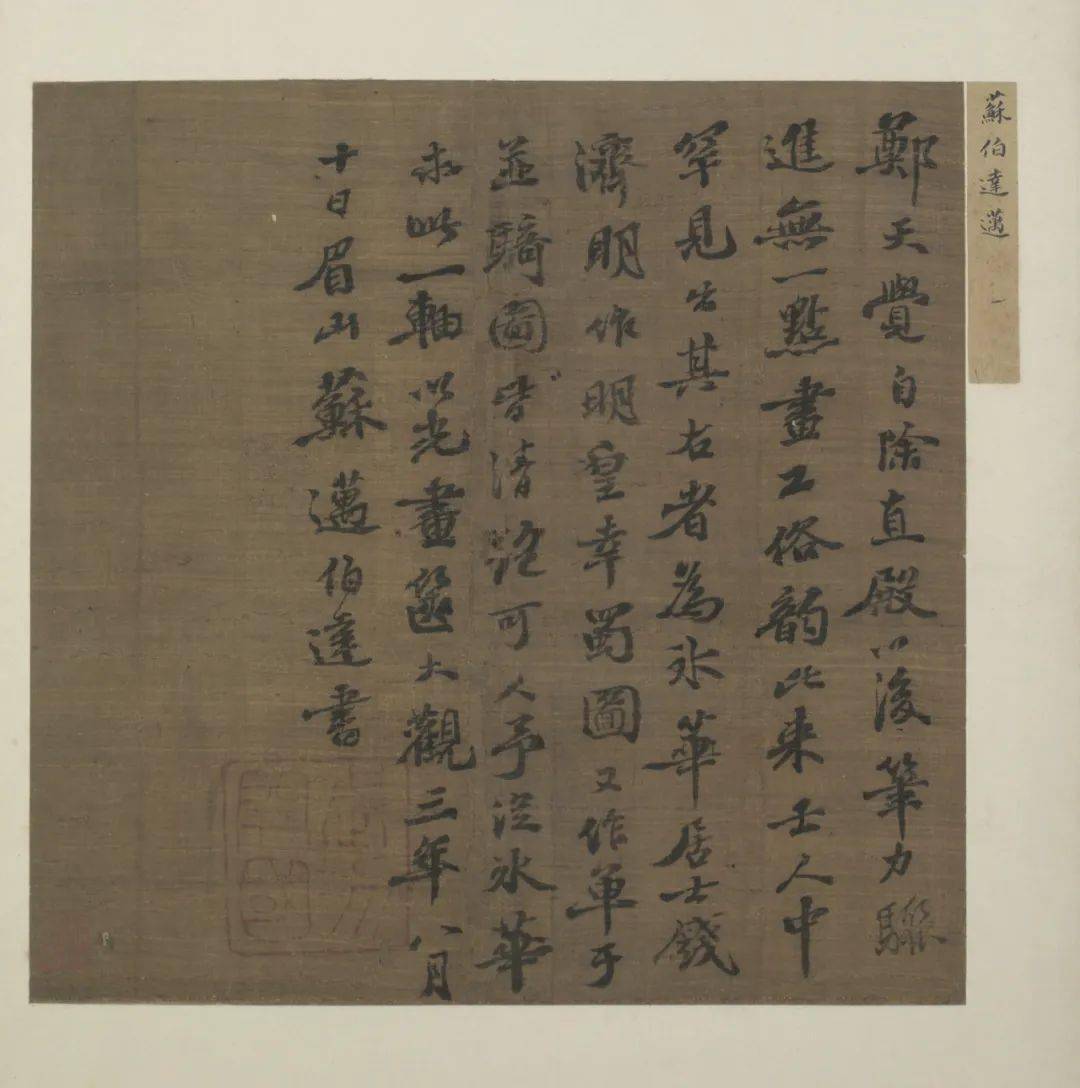 蘇伯達邁
鄭天覺自除直殿以後筆力
進無一點畫工俗韵比来士人中
罕見出其右者為冰華居士錢
濟明作明皇幸蜀圖又作單于
並驕圖皆清潤可人予從冰華
求此一軸以光畫篋大觀三年八月
十日眉山蘇邁伯達書